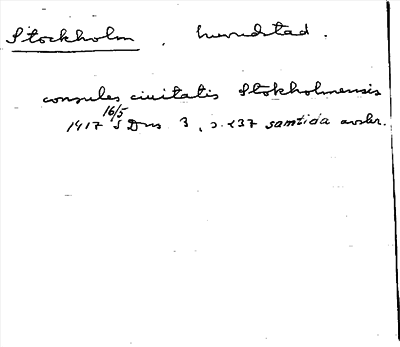 Stockholm, huvudstad.
consules ciuitatis Stokholmensis
1417 16/5 SDns 3, s. 237 samtida avskr.